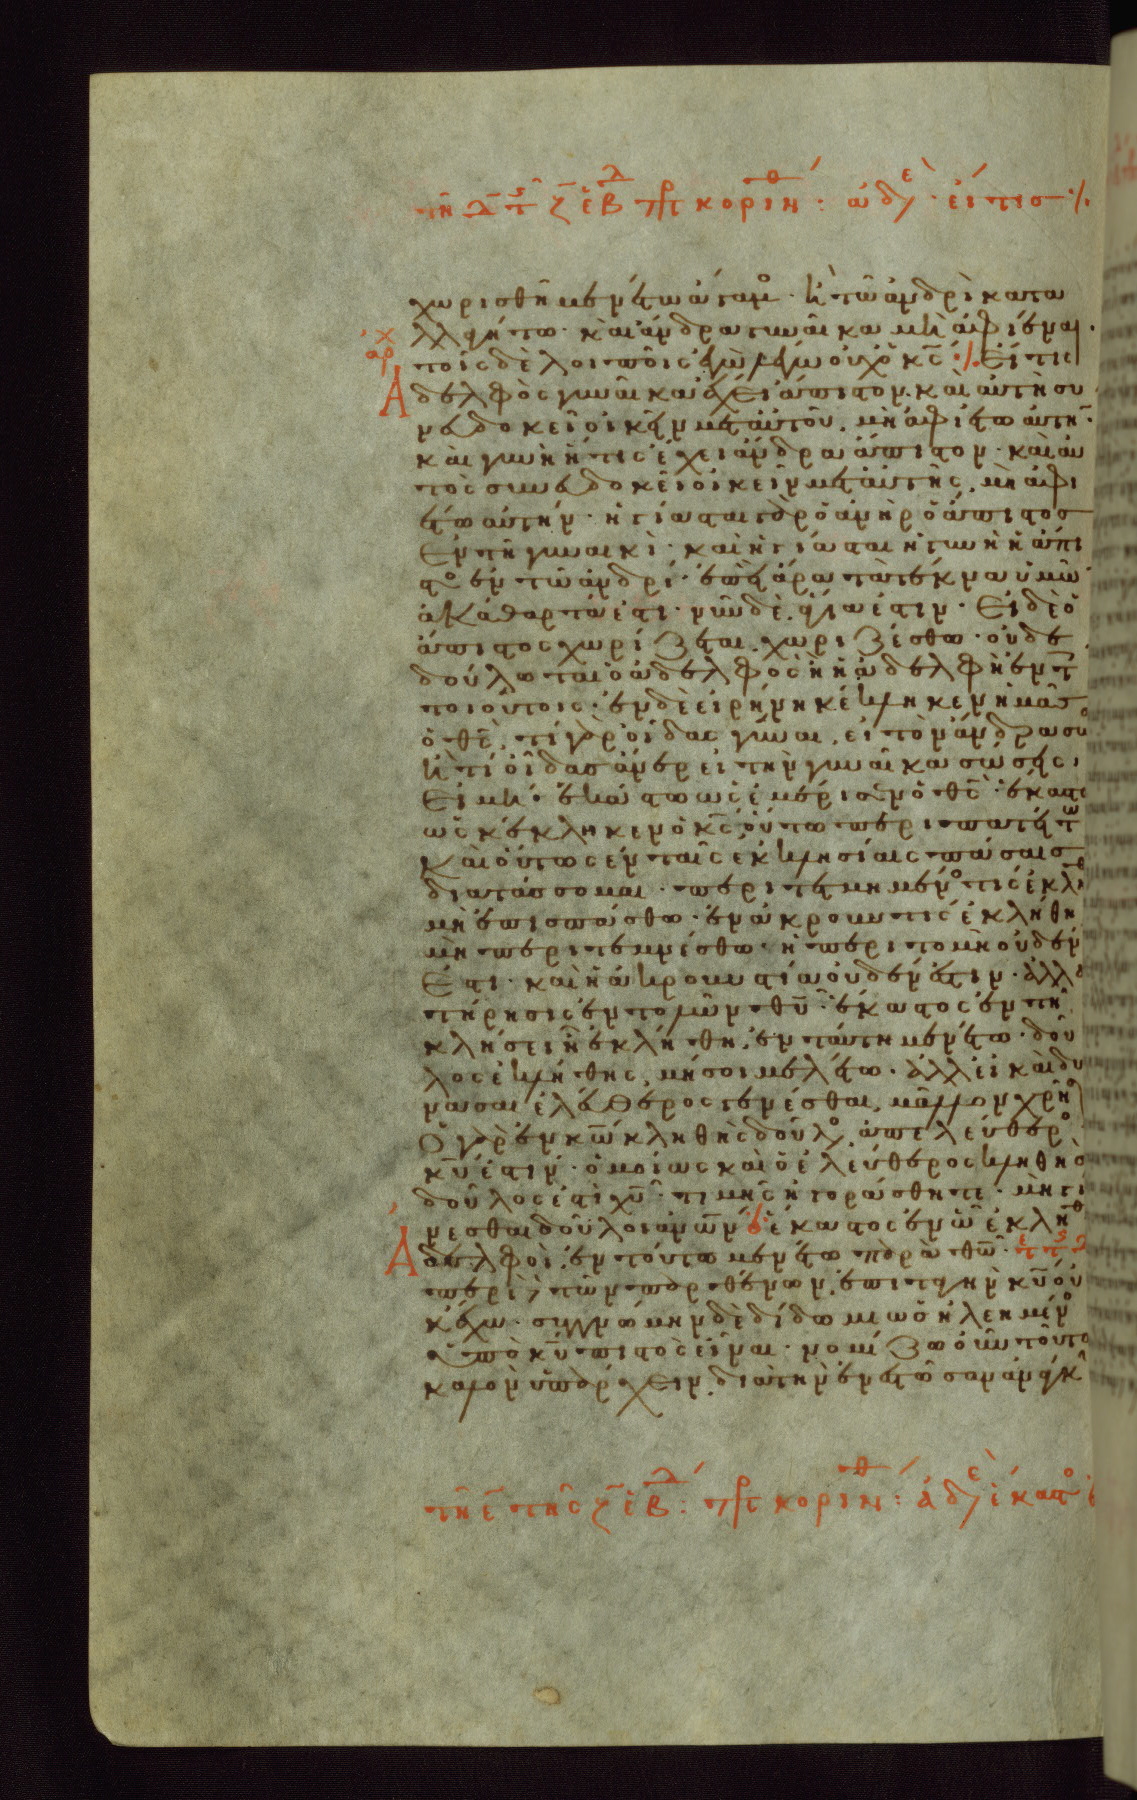 τῆ δ τ ς ζ ἑβδ πρ κορινθ: ἀδε· εἴ τις ⁒
χωρισθῆ μενέτω ἄγαμο· ἢ τῶ ἀνδρὶ κατα
λλαγήτω· καὶ ἄνδρα γυναῖκα μὴ ἀφιέναι·
αρχ τοῖς δὲ λοιποῖς ἐγὼ λέγω οὐχ ὁ κς ⁒ Εἴ τις
Ἀδελφὸς γυναῖκα ἔχει ἄπιστον· καὶ αὐτὴ συ
νευδοκεῖ οἰκεῖν μετ αὐτοῦ, μὴ ἀφιέτω αὐτὴν·
καὶ γυνὴ ἥτις ἔχει ἄνδρα ἄπιστον· καὶ αὐ
τὸς συνευδοκεῖ οἰκεῖν μετ αὐτῆς, μὴ ἀφι
έτω αὐτήν· ἡγίασται γὰρ ὁ ἀνὴρ ὁ ἄπιστος
Ἐν τῆ γυναικὶ· καὶ ἡγίασται ἡ γυνὴ ἡ ἄπι
στο ἐν τῶ ἀνδρί· ἐπεὶ ἄρα τὰ τέκνα ὑμῶν
ἀκάθαρτά ἐστι· νῦν δὲ ἅγιά ἐστιν· Εἰ δὲ ὁ
ἄπιστος χωρίζεται, χωριζέσθω· οὐ δε
δούλωται ὁ ἀδελφὸς ἢ ἡ ἀδελφὴ ἐν τ
τοιούτοις· ἐν δὲ εἰρήνη κέκληκεν ἡμᾶς
ὁ θς, τί γὰρ οἶδας γύναι, εἰ τὸν ἄνδρα σώ
ἢ τί οἶδας ἄνερ εἰ τὴν γυναῖκα σώσεις·
Εἰ μὴ· ἑκάστω ὡς ἐμέρισεν ὁ θς· ἕκαστο
ὡς κέκληκεν ὁ κς οὕτω περιπατείτω
Καὶ οὕτως ἐν ταῖς ἐκκλησίαις πάσαις
διατάσσομαι· περιτετμημένο τίς ἐκλή
μὴ ἐπισπάσθω· ἐν ἀκροβυστί τίς ἐκλήθη
μὴ περιτεμνέσθω· ἡ περιτομὴ οὐδέν
Ἐστι· καὶ ἡ ἀκροβυστία οὐδέν ἐστιν· ἀλλὰ
τήρησις ἐντολῶν θυ· ἕκαστος ἐν τῆ
κλήσει ἧ ἐκλήθη, ἐν ταύτη μενέτω· δοῦ
λος ἐκλήθης, μή σοι μελέτω· ἀλλ εἰ καὶ δύ
νασαι ἐλεύθερος γενέσθαι, μᾶλλον χρῆ
Ὁ γὰρ ἐν κω κληθεὶς δοῦλο, ἀπελεύθερο
κυ ἐστιν· ὁμοίως καὶ ὁ ἐλεύθερος κληθεὶς
δοῦλος ἐστὶ χυ· τιμῆς ἠγοράσθητε· μὴ γί
νεσθαι δοῦλοι ἀνων· ἕκαστος ἐν ὧ ἐκλήθ
Ἀδελφοὶ, ἐν τούτω μενέτω παρὰ θω·
περὶ δὲ τῶν παρθένων, ἐπιταγὴν κυ οὐ
κ ἔχω· συγγνώμην δὲ δίδωμι ὡς ἠλεημένο
ὑπὸ κυ πιστὸς εἶναι· νομίζω οὖν τοῦτο
καλὸν ὑπάρχειν, διὰ τὴν ἐνεστῶσαν ἀνάγκ
τῆ ε τῆς ζ ἑβδ: πρ κορινθ: ἀδε ἕκαστο